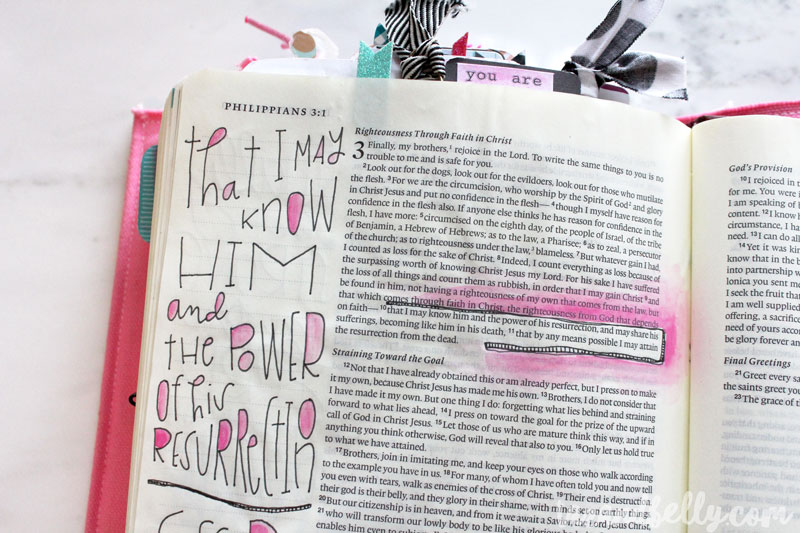 you are
PHILIPPIANS 3:1
that I MAY
KNOW
HIM
and
THE POWER
Of his
RESURRECTIN
Righteousness Through Faith in Christ
3 Finally, my brothers,¹ rejoice in the Lord. To write the same things to you is no
trouble to me and is safe for you.
²Look out for the dogs, look out for the evildoers, look out for those who mutilate
the flesh. ³For we are the circumcision, who worship by the Spirit of God² and glory
in Christ Jesus and put no confidence in the flesh— ⁴though I myself have reason for
confidence in the flesh also. If anyone else thinks he has reason for confidence in the
flesh, I have more: ⁵circumcised on the eighth day, of the people of Israel, of the tribe
of Benjamin, a Hebrew of Hebrews; as to the law, a Pharisee; ⁶as to zeal, a persecutor
of the church; as to righteousness under the law,³ blameless. ⁷But whatever gain I had,
I counted as loss for the sake of Christ. ⁸Indeed, I count everything as loss because of
the surpassing worth of knowing Christ Jesus my Lord. For his sake I have suffered
the loss of all things and count them as rubbish, in order that I may gain Christ ⁹and
be found in him, not having a righteousness of my own that comes from the law, but
that which comes through faith in Christ, the righteousness from God that depends
on faith— ¹⁰that I may know him and the power of his resurrection, and may share his
sufferings, becoming like him in his death, ¹¹that by any means possible I may attain
the resurrection from the dead.
Straining Toward the Goal
¹²Not that I have already obtained this or am already perfect, but I press on to make
it my own, because Christ Jesus has made me his own. ¹³Brothers, I do not consider that
I have made it my own. But one thing I do: forgetting what lies behind and straining
forward to what lies ahead, ¹⁴I press on toward the goal for the prize of the upward
call of God in Christ Jesus. ¹⁵Let those of us who are mature think this way, and if in
anything you think otherwise, God will reveal that also to you. ¹⁶Only let us hold true
to what we have attained.
¹⁷Brothers, join in imitating me, and keep your eyes on those who walk according
to the example you have in us. ¹⁸For many, of whom I have often told you and now tell
you even with tears, walk as enemies of the cross of Christ. ¹⁹Their end is destruction,
their god is their belly, and they glory in their shame, with minds set on earthly things.
²⁰But our citizenship is in heaven, and from it we await a Savior, the Lord Jesus Christ,
²¹who will transform our lowly body to be like his glorious
enables him even to subject
God's Provision
¹⁰I rejoiced in
for me. You were
I am speaking of
content. ¹²I know
circumstance, I ha
need. ¹³I can do all
¹⁴Yet it was kin
know that in the b
into partnership w
lonica you sent m
I seek the fruit tha
I am well supplied
offering, a sacrific
need of yours acco
be glory forever an
Final Greetings
²¹Greet every sa
the saints greet you
²³The grace of t
belly.com